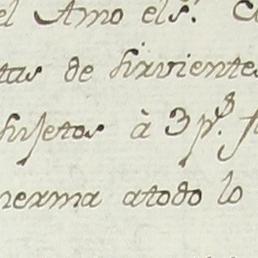 el Amo el s.r
tas de sirvientes
sujetos à 3 p.s
merma atodo lo